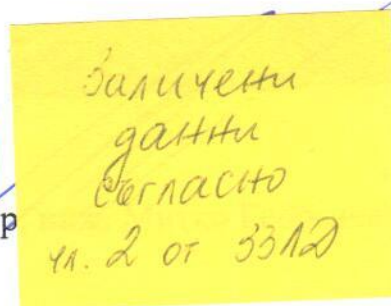 Заличени
данни
съгласно
р
чл. 2 от ЗЗЛД